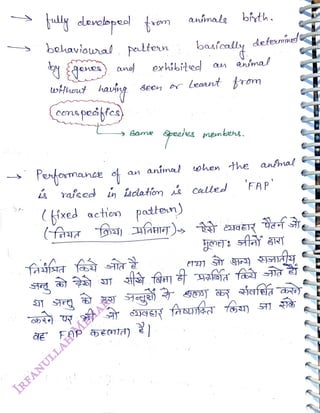 → fully developed from animals birth.
→ behavioural pattern basically determined
by genes and exhibitied an animal
without having seen or learnt from
conspecifics
→ same species members.
→ Performance of an animal when the animal
is raised in isolation is called 'FAP'
(fixed action pattern)
(नियत क्रिया प्रतिमान) → ऐसे व्यवहार पैटर्न जो
मूलतः जीनों द्वारा
नियंत्रित किये जाते हैं तथा जो अन्य सजातीय
जन्तु को देखे या सीखे बिना ही प्रदर्शित किये जाते हों
या जन्तु को अन्य जन्तुओं से अलग कर संवर्धित करने
करने पर भी जो व्यवहार निष्पादित किया जा सके
वह FAP कहलाता है।
IRFANULLAH